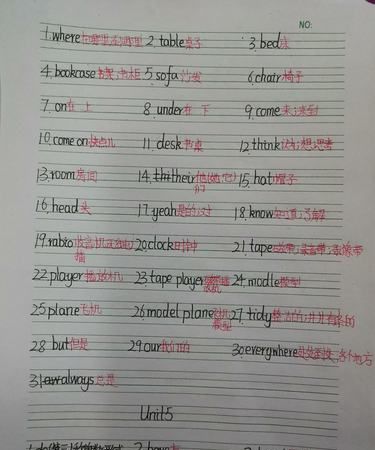 NO:
1.where在哪里;到哪里 2.table桌子 3.bed床
4.bookcase书架;书柜 5.sofa沙发 6.chair椅子
7.on在…上 8.under在…下 9.come来;来到
10.come on快点儿 11.desk书桌 12.think认为;想;思考
13.room房间 14.their他(她;它)们 15.hat帽子
16.head头 17.yeah是的;对 18.know知道;了解
19.rabio收音机;无线电广播 20.clock时钟 21.tape磁带;录音带;录像带
22.player播放机 23.tape player 24.modle模型
25.plane飞机 26.model plane飞机模型 27.tidy整洁的;井井有条的
28.but但是 29.our我们的 30.everywhere处处;到处;各个地方
31.always总是
Unit5